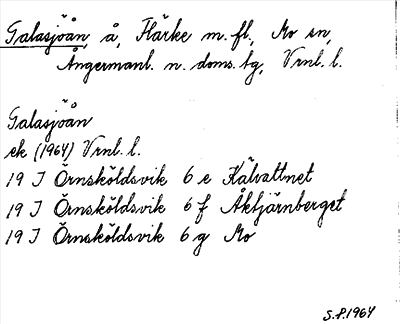 Galasjöån, å, Härke m.fl., Mo sn,
Ångermanl. n. doms. tg, Vrnl. l.
Galasjöån
ek (1964) Vrnl. l.
19 J Örnsköldsvik 6 e Kälvattnet
19 J Örnsköldsvik 6 f Åktjärnberget
19 J Örnsköldsvik 6 g Mo
S.P. 1964